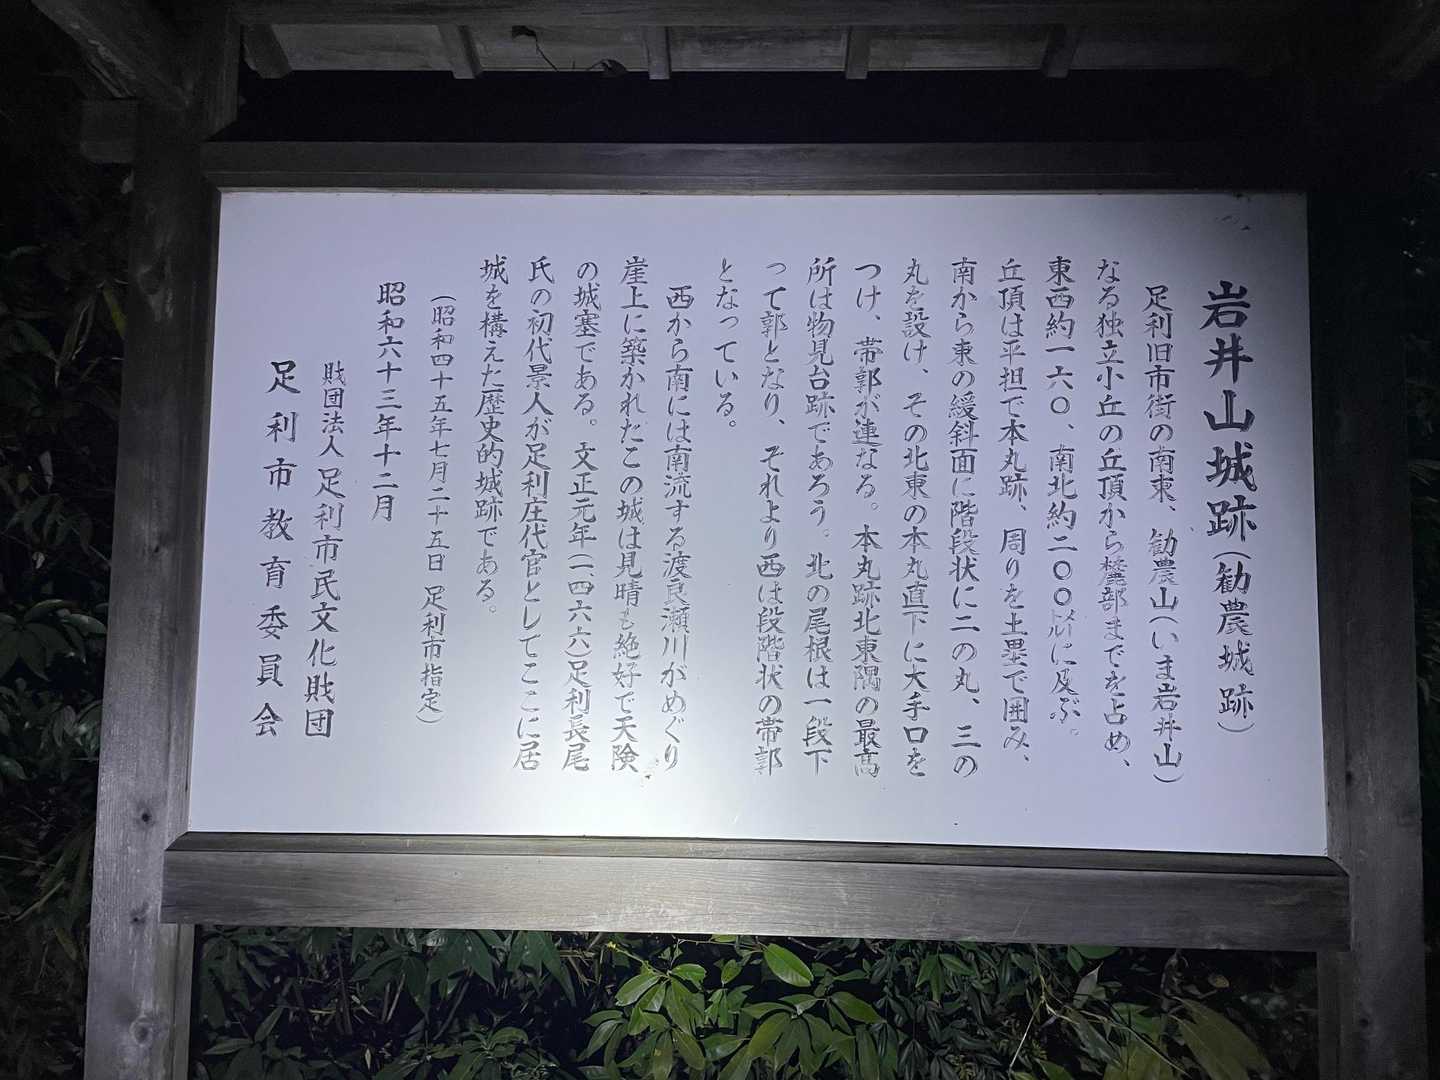 岩井山城跡(勧農城跡)
足利旧市街の南東、勧農山(いま岩井山)
なる独立小丘の丘頂から麓部までを占め、
東西約一六〇、南北約二〇〇メートルに及ぶ。
丘頂は平担で本丸跡、周りを土塁で囲み、
南から東の緩斜面に階段状に二の丸、三の
丸を設け、その北東の本丸直下に大手口を
つけ、帯郭が連なる。本丸跡北東隅の最高
所は物見台跡であろう。北の尾根は一段下
って郭となり、それより西は段階状の帯郭
となっている。
西から南には南流する渡良瀬川がめぐり
崖上に築かれたこの城は見晴も絶好で天険
の城塞である。文正元年(一四六六)足利長尾
氏の初代景人が足利庄代官としてここに居
城を構えた歴史的城跡である。
(昭和四十五年七月二十五日 足利市指定)
昭和六十三年十二月
財団法人 足利市民文化財団
足利市教育委員会